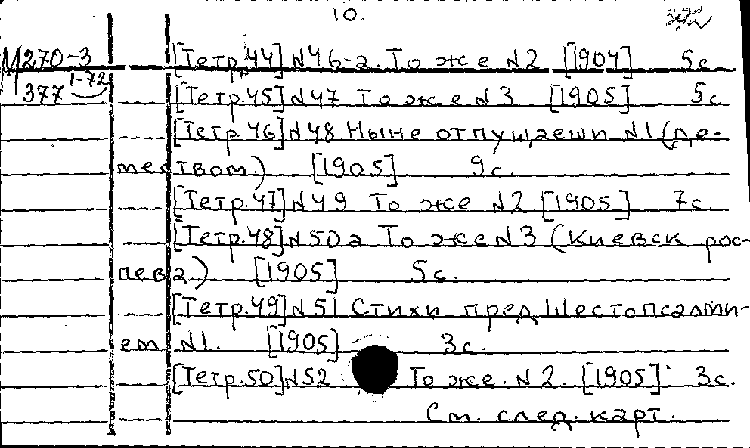 10.
М270-3 [Тетр.44] №46-а. То же №2 [1904] 5с.
1-72
377 [Тетр.45] №47 То же №3 [1905] 5с.
[Тетр.46] №48 Ныне отпущаеши №1 (де-
меством) [1905] 9с.
[Тетр.47] №49 То же №2 [1905] 7с.
[Тетр.48] №50а То же №3 (Киевск рос-
пева) [1905] 5с.
[Тетр.49] №51 Стихи пред Шестопсалми-
ем №1. [1905] 3с.
[Тетр.50] №52 То же №2. [1905] 3с.
См. след. карт.